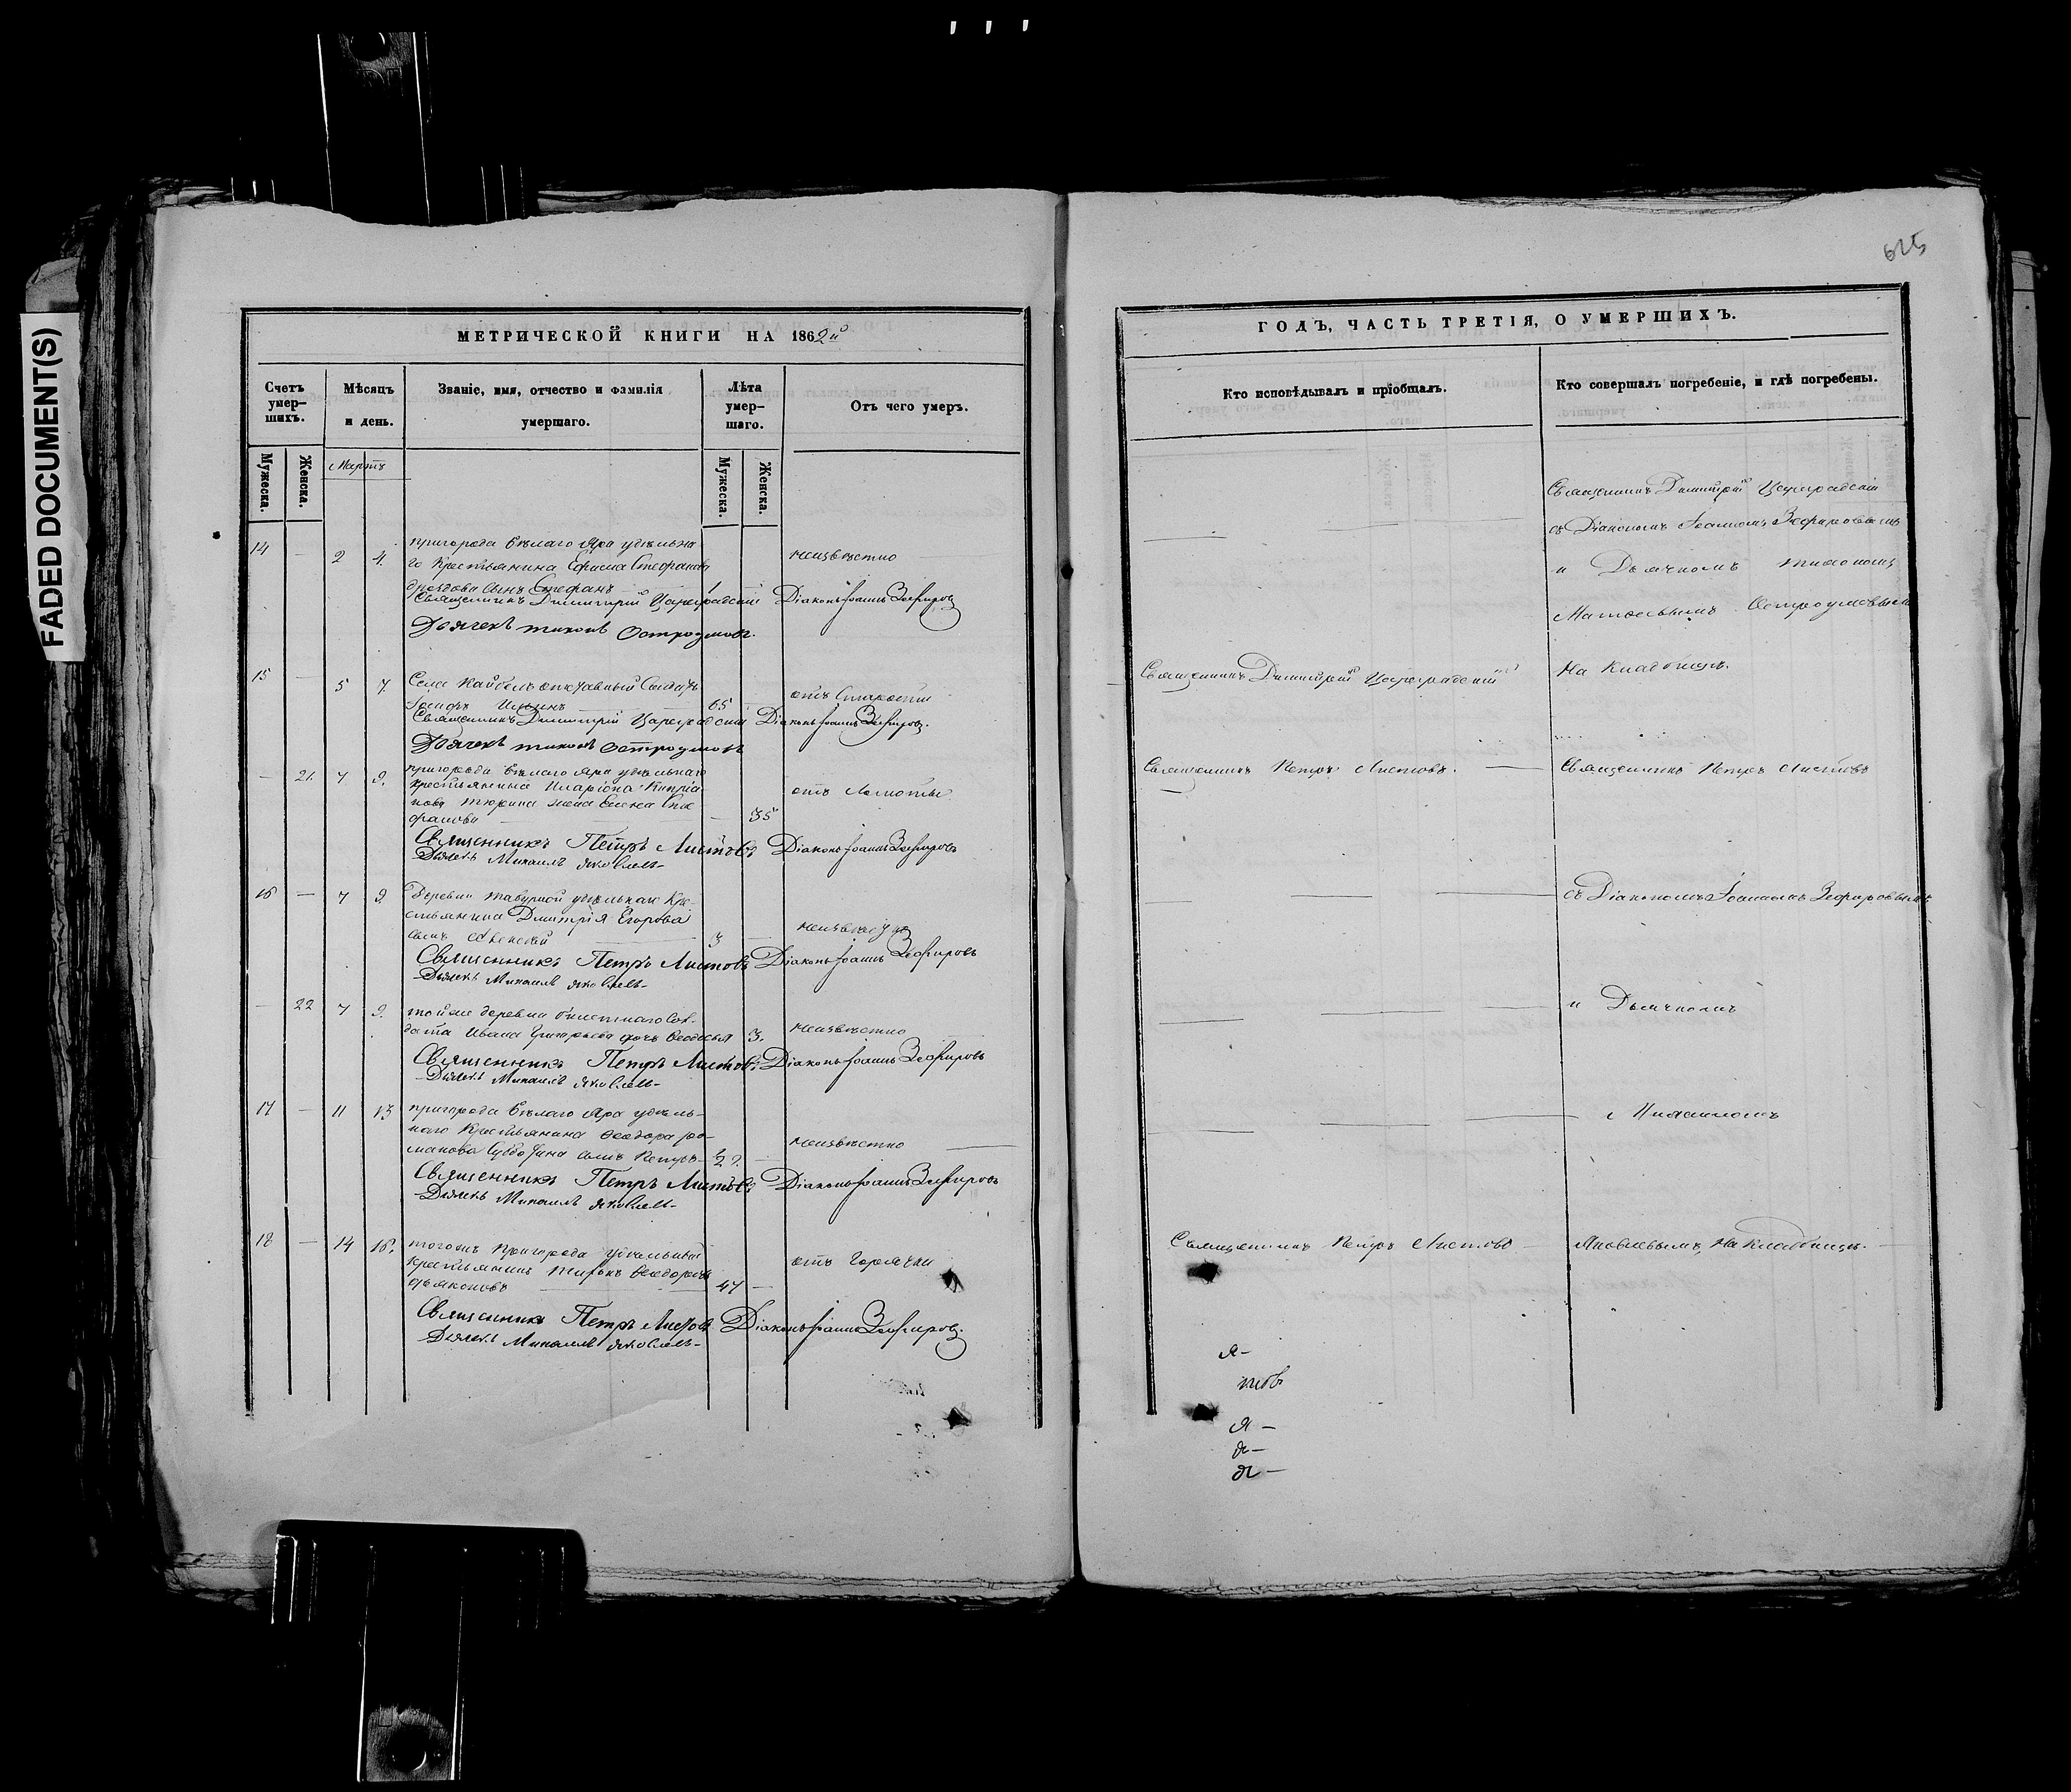 FADED DOCUMENT(S)
625
МЕТРИЧЕСКОЙ КНИГИ НА 1862й
Счетъ умер-
шихъ.
Мѣсяцъ
и день.
Званіе, имя, отчество и фамилія
умершаго.
Лѣта
умер-
шаго.
Отъ чего умеръ.
Мужеска.
Женска.
Мартъ
Мужеска.
Женска.
14 — 2 4. пригорода Бѣлаго Яра удѣльна
го Крестьянина Ефима Стефанова неизвѣстно
сынъ Стефанъ 1
Священникъ Димитрій Цареградскій Діаконъ Іоаннъ Зефировъ
Дьячекъ Тихонъ Остроумовъ.
15 — 5 7. Села Кайбелъ отставный Солдатъ
Іосифъ Ильинъ 65 отъ Старости
Священникъ Димитрій Цареградскій Діаконъ Іоаннъ Зефировъ.
Дьячекъ Тихонъ Остроумовъ
— 21. 7 9. пригорода Бѣлаго Яра удѣльнаго
крестьянина Иларіона Кипріа
нова Тюрина жена Елена Сте
фанова — 35 отъ Ломоты
Священникъ Петръ Листовъ Діаконъ Іоаннъ Зефировъ
Дьячекъ Михаилъ Яковлевъ
16 — 7 9 Деревни удѣльнаго Кре
стьянина Дмитрія Егорова
сынъ Алексѣй 3 — неизвѣстно
Священникъ Петръ Листовъ Діаконъ Іоаннъ Зефировъ
Дьячекъ Михаилъ Яковлевъ
— 22 7 9. той же деревни билетнаго Сол-
дата Ивана Григорьева дочь Феодосья 3. неизвѣстно
Священникъ Петръ Листовъ Діаконъ Іоаннъ Зефировъ
Дьячекъ Михаилъ Яковлевъ
17 — 11 13 пригорода Бѣлаго Яра удѣль-
наго Крестьянина Феодора Ро-
манова Субботина сынъ Петръ — неизвѣстно
Священникъ Петръ Листовъ Діаконъ Іоаннъ Зефировъ
Дьячекъ Михаилъ Яковлевъ
18 — 14 16. тогожъ пригорода удѣльный
крестьянинъ Феодоровъ
Дьяконовъ 47 — отъ Горячки
Священникъ Петръ Листовъ Діаконъ Іоаннъ Зефировъ.
Дьячекъ Михаилъ Яковлевъ
ГОДЪ, ЧАСТЬ ТРЕТІЯ, О УМЕРШИХЪ.
Кто исповѣдывалъ и пріобщалъ.
Кто совершалъ погребеніе, и гдѣ погребены.
Священникъ Димитрій Цареградскій
съ Діакономъ Іоанномъ Зефировымъ
и Дьячкомъ Тихономъ
Матвеевымъ Остроумовымъ
Священникъ Димитрій Цареградскій На Кладбищѣ.
Священникъ Петръ Листовъ. — Священникъ Петръ Листовъ
съ Діакономъ Іоанномъ Зефировымъ
и Дьячкомъ
Михаиломъ
Священникъ Петръ Листовъ — Яковлевымъ, На Кладбищѣ.
Я-
товъ
Я —
Я —
Я —